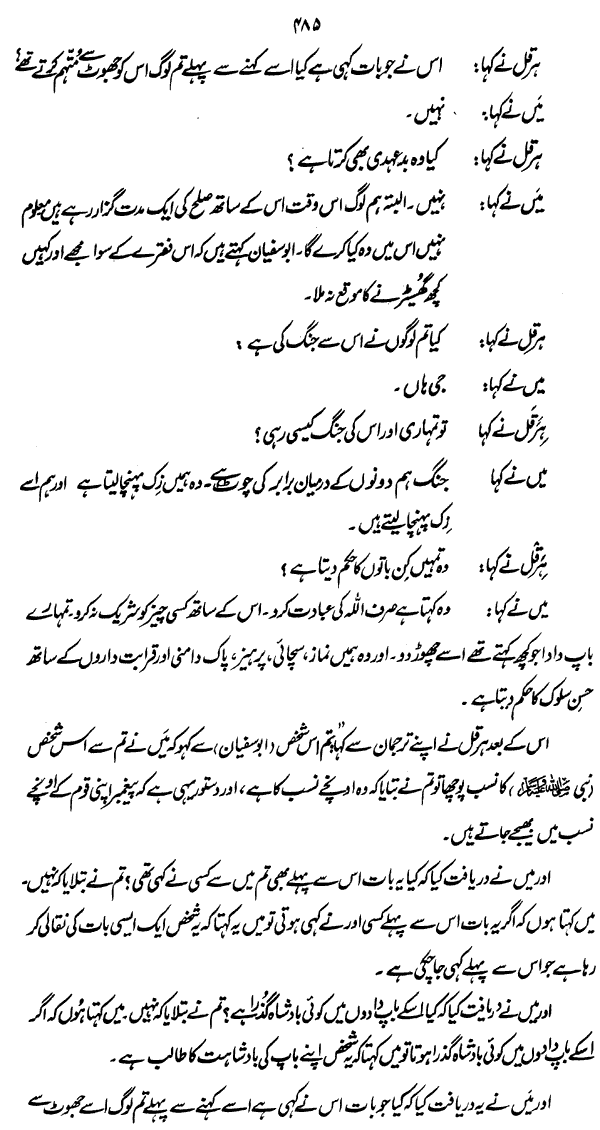 ۴۸۵
ہرقل نے کہا: اس نے جو بات کہی ہے کیا اسے کہنے سے پہلے تم لوگ اس کو جھوٹ سے متہم کرتے تھے؟
میں نے کہا: نہیں۔
ہرقل نے کہا: کیا وہ بدعہدی بھی کرتا ہے؟
میں نے کہا: نہیں۔ البتہ ہم لوگ اس وقت اس کے ساتھ صلح کی ایک مدت گزار رہے ہیں معلوم
نہیں اس میں وہ کیا کرے گا۔ ابوسفیان کہتے ہیں کہ اس فقرے کے سوا مجھے اور کہیں
کچھ گھسیڑنے کا موقع نہ ملا۔
ہرقل نے کہا: کیا تم لوگوں نے اس سے جنگ کی ہے؟
میں نے کہا: جی ہاں۔
ہِرَقل نے کہا تو تمہاری اور اس کی جنگ کیسی رہی؟
میں نے کہا جنگ ہم دونوں کے درمیان برابر کی چوٹ ہے۔ وہ ہمیں زِک پہنچا لیتا ہے اور ہم اسے
زِک پہنچا لیتے ہیں۔
ہِرَقْل نے کہا: وہ تمہیں کِن باتوں کا حکم دیتا ہے؟
میں نے کہا: وہ کہتا ہے صرف اللہ کی عبادت کرو۔ اس کے ساتھ کسی چیز کو شریک نہ کرو۔ تمہارے
باپ دادا جو کچھ کہتے تھے اسے چھوڑ دو۔ اور وہ ہمیں نماز، سچائی، پرہیز، پاک دامنی اور قرابت داروں کے ساتھ
حسن سلوک کا حکم دیتا ہے۔
اس کے بعد ہرقل نے اپنے ترجمان سے کہا "تم اس شخص (ابوسفیان) سے کہو کہ میں نے تم سے اس شخص
(نبی ﷺ) کا نسب پوچھا تو تم نے بتایا کہ وہ اونچے نسب کا ہے، اور دستور یہی ہے کہ پیغمبر اپنی قوم کے اونچے
نسب میں بھیجے جاتے ہیں۔
اور میں نے دریافت کیا کہ کیا یہ بات اس سے پہلے بھی تم میں سے کسی نے کہی تھی؟ تم نے بتلایا کہ نہیں۔
میں کہتا ہوں کہ اگر یہ بات اس سے پہلے کسی اور نے کہی ہوتی تو میں یہ کہتا کہ یہ شخص ایک ایسی بات کی نقالی کر
رہا ہے جو اس سے پہلے کہی جا چکی ہے۔
اور میں نے دریافت کیا کہ کیا اسکے باپ دادوں میں کوئی بادشاہ گذرا ہے؟ تم نے بتلایا کہ نہیں۔ میں کہتا ہوں کہ اگر
اسکے باپ دادوں میں کوئی بادشاہ گذرا ہوتا تو میں کہتا کہ یہ شخص اپنے باپ کی بادشاہت کا طالب ہے۔
اور میں نے یہ دریافت کیا کہ کیا جو بات اس نے کہی ہے اسے کہنے سے پہلے تم لوگ اسے جھوٹ سے